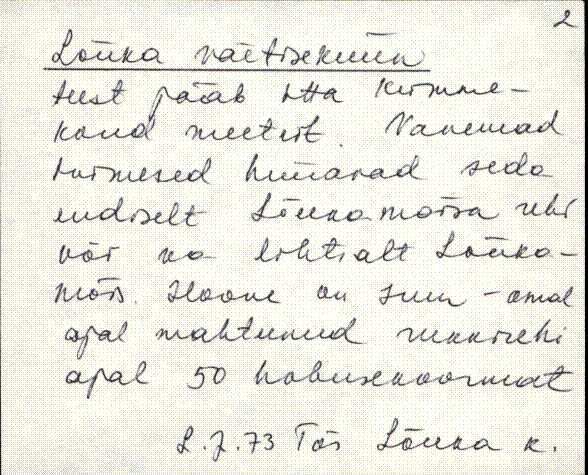 2
Lõuka väetiseküün
teest pääb otta kümme-
kond meetrit. Vanemad
inimesed hüüavad seda
endiselt Lõuka mõisa rehi
või ka lihtsalt Lõuka-
mõis. Hoone on suur - omal
ajal mahtunud rukkirehi
ajal 50 hobusekoormat
L. J. 73 Tõs Lõuka k.